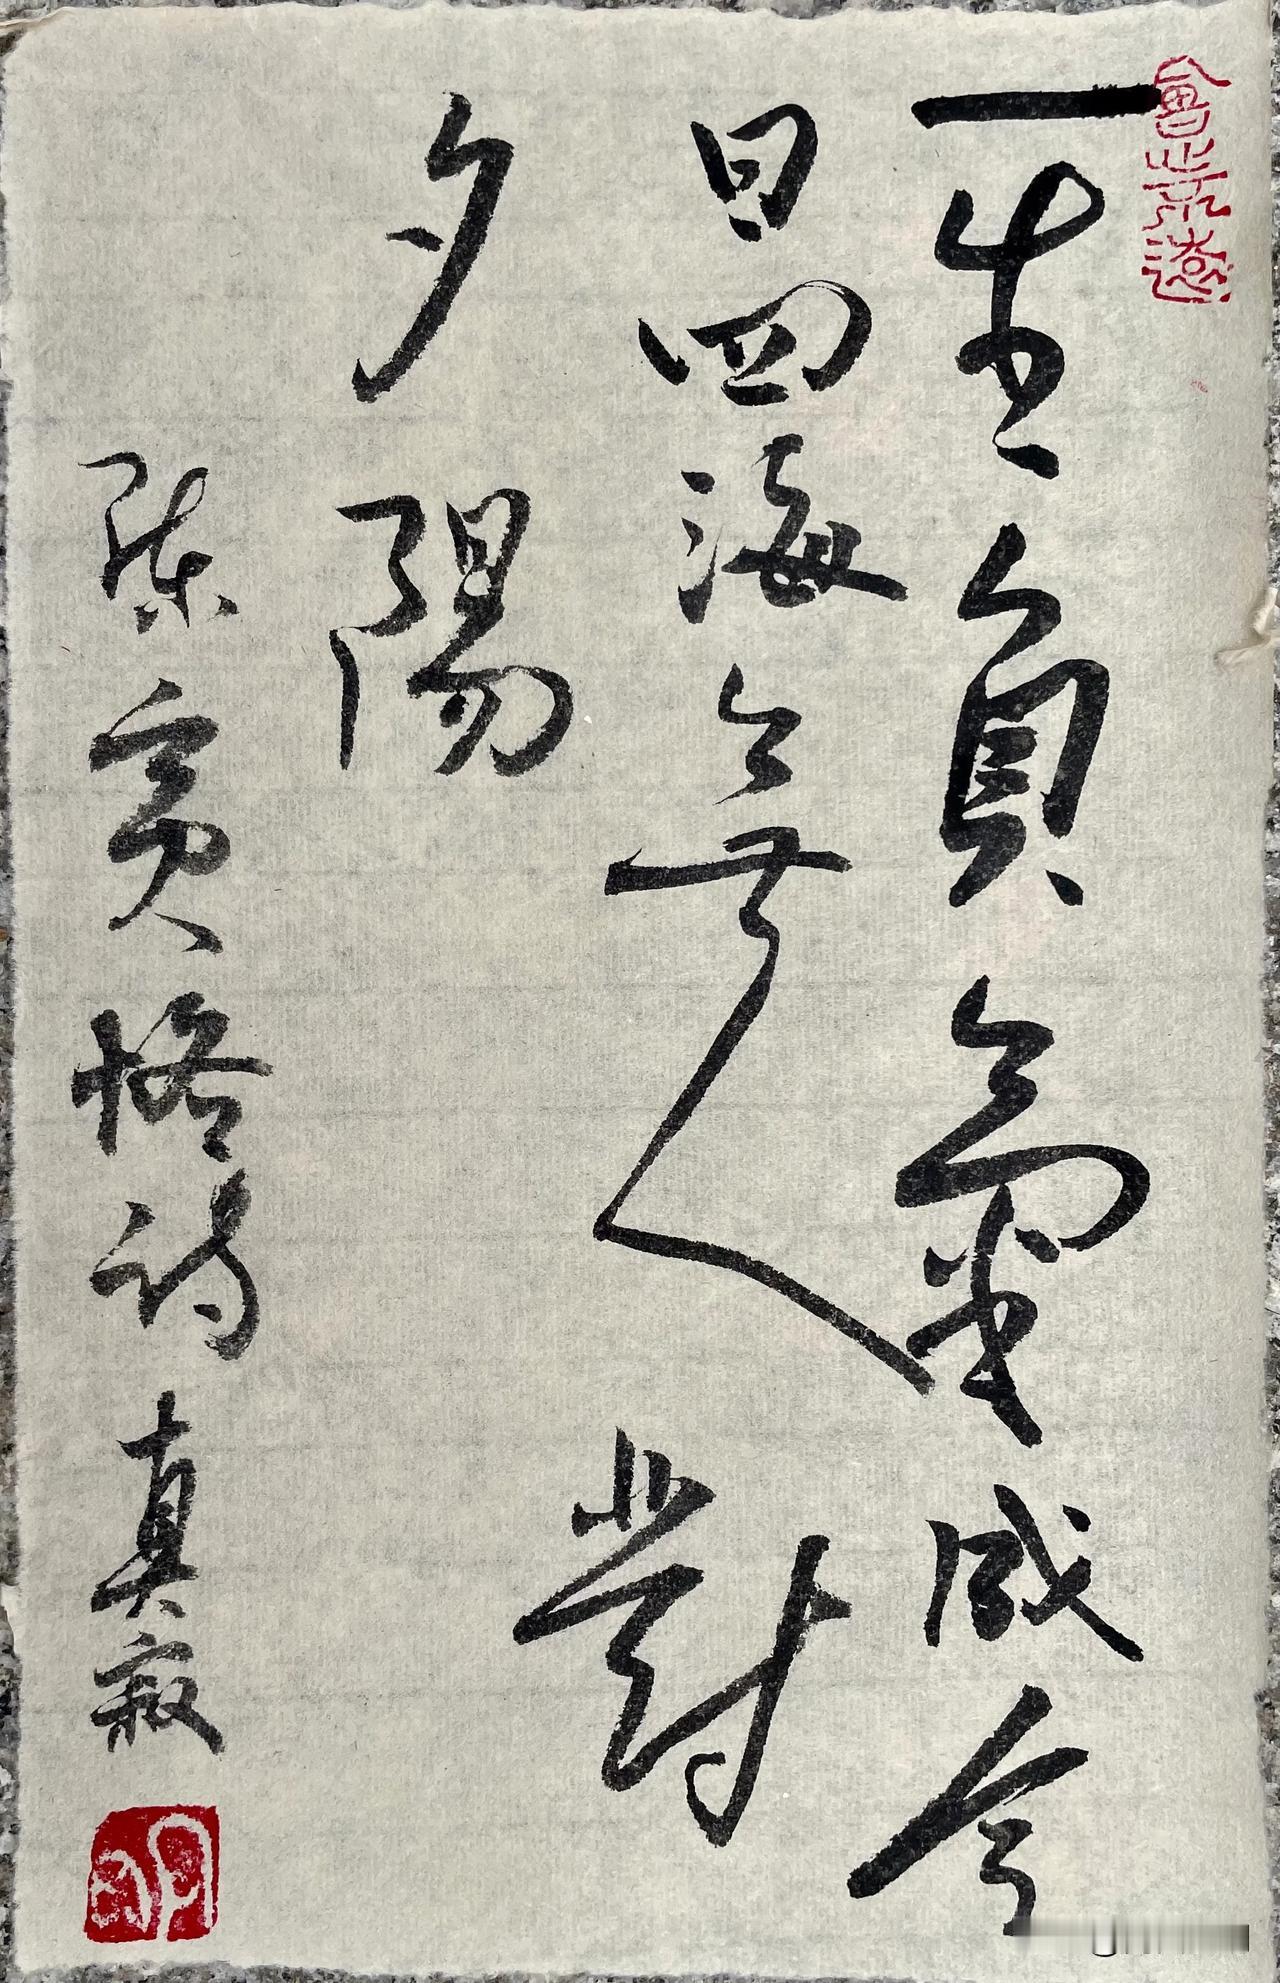 一生負氣成今
日四海無人對
夕陽
陳寅恪詩 真寂